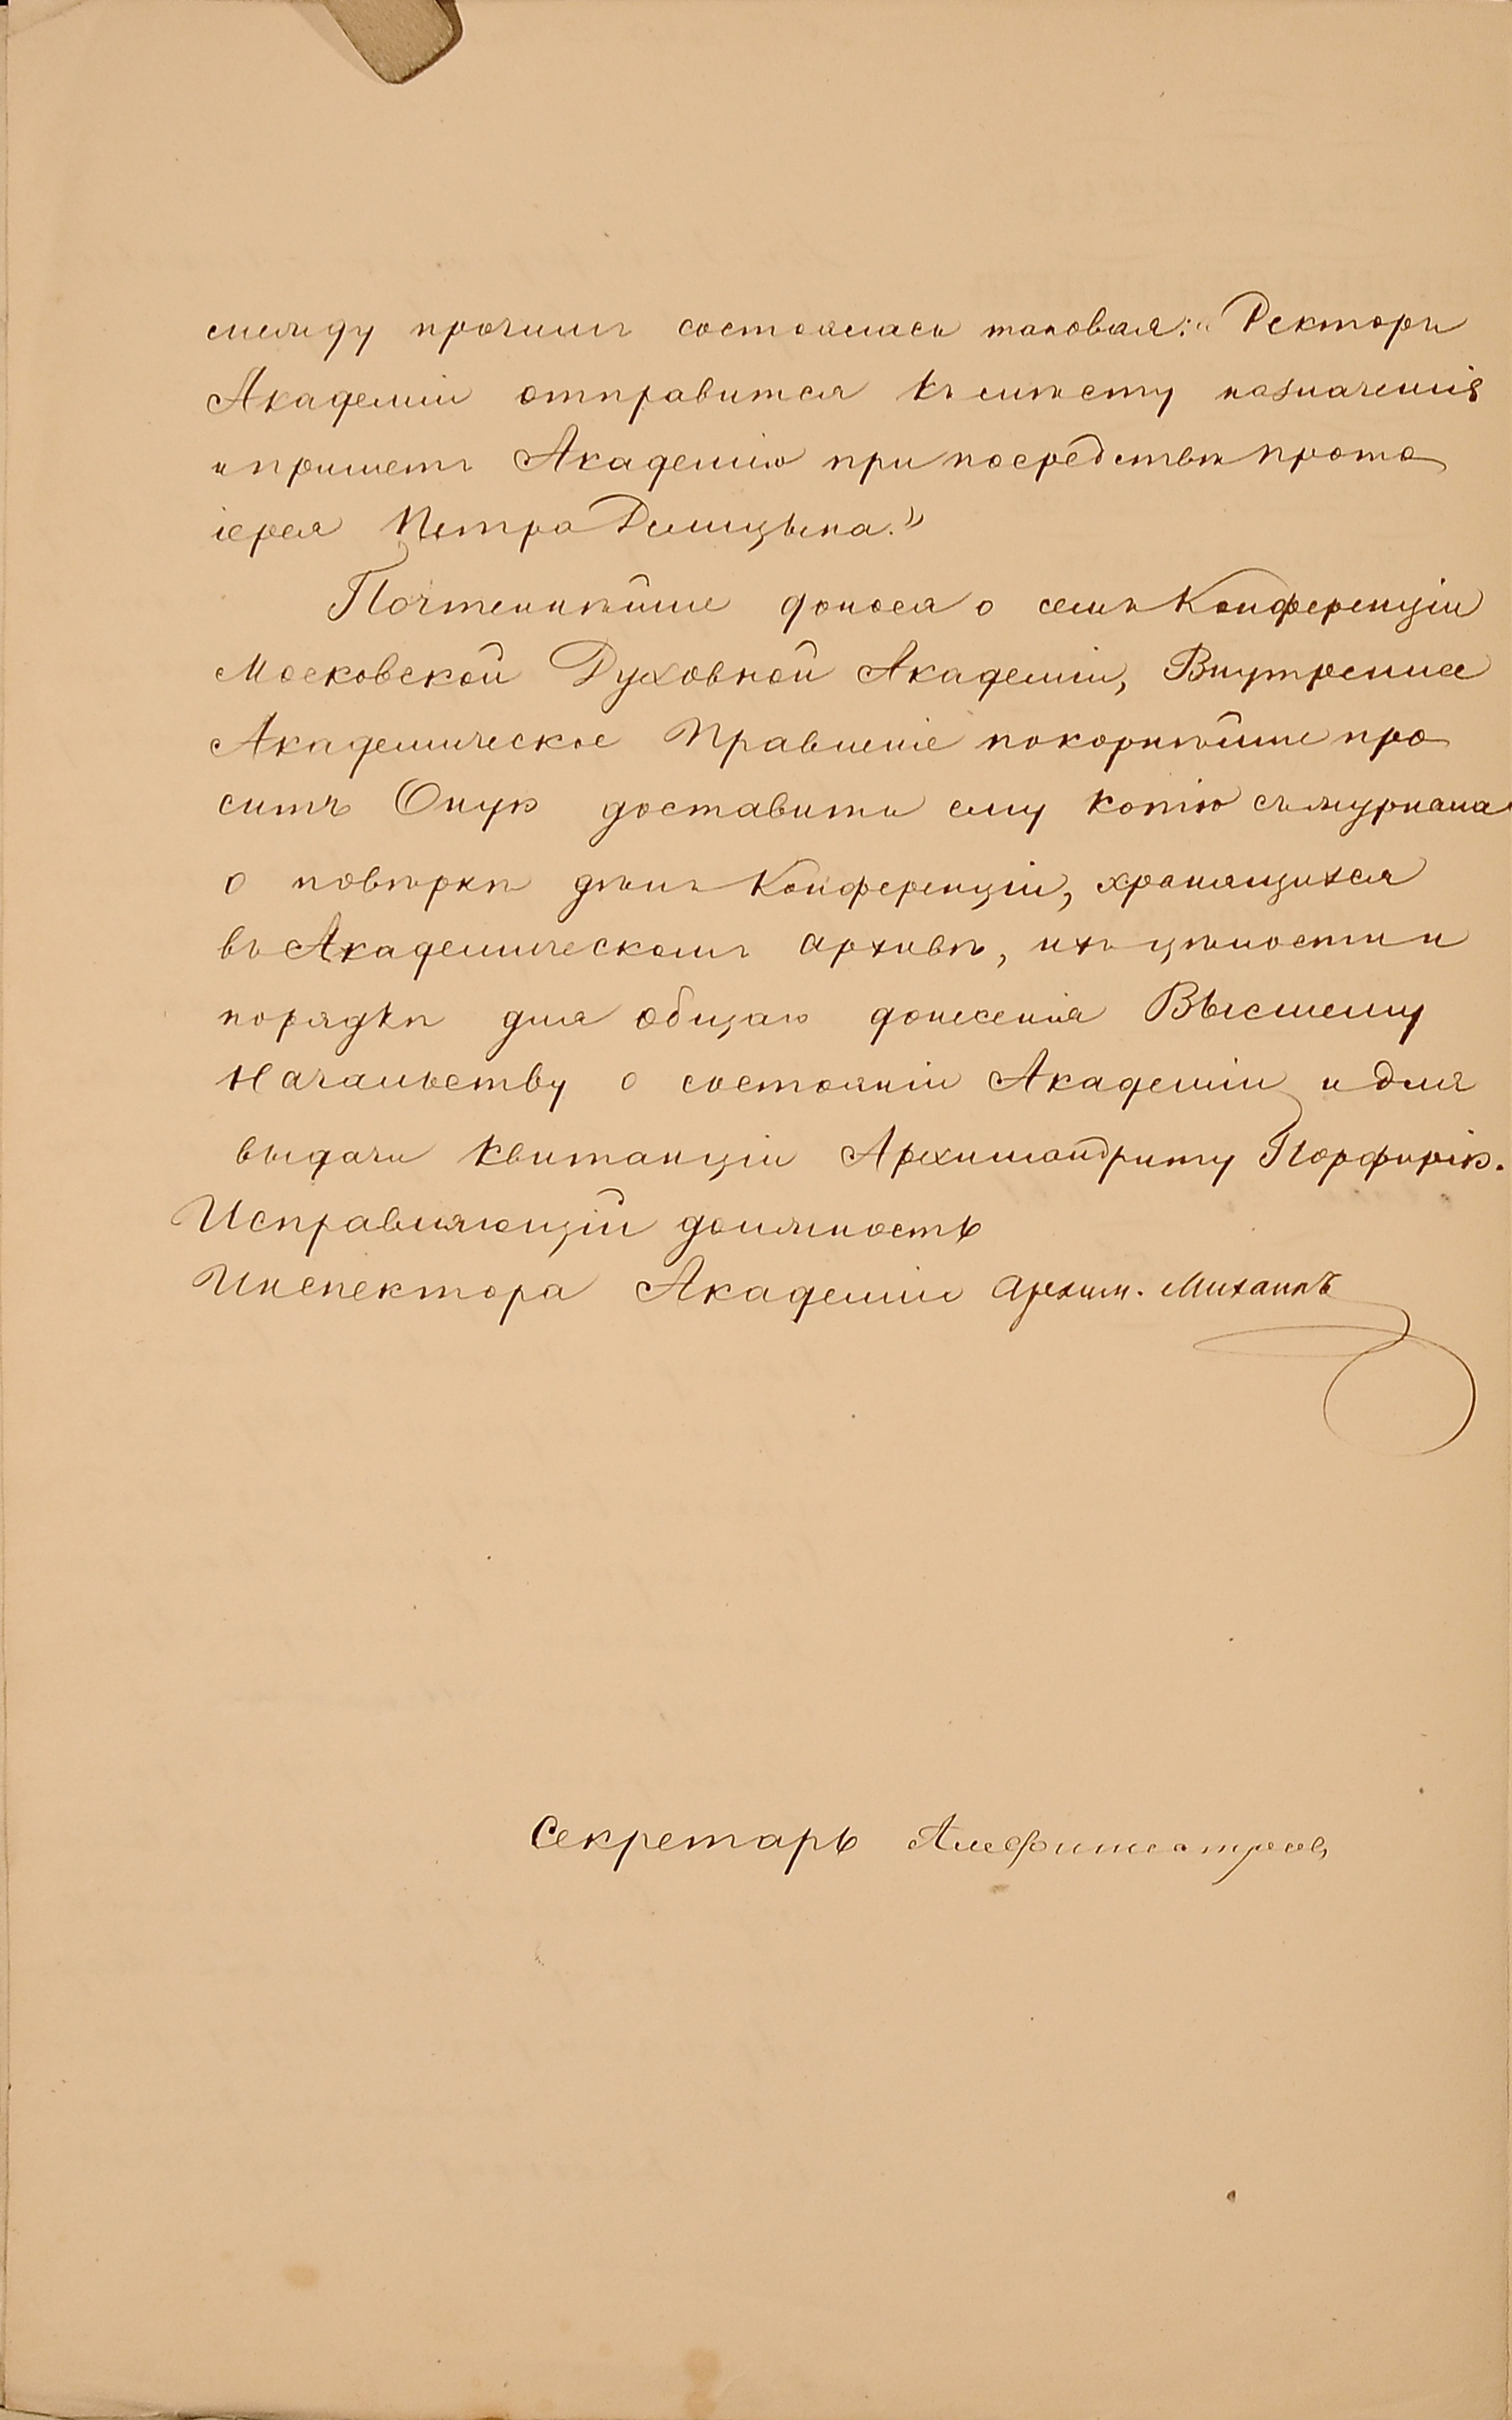 между прочимъ состоялась таковая: „Ректоръ
Академіи отправится къ мѣсту назначенія
и приметъ Академію при посредствѣ прото
іерея Петра Делицына."
Почтеннѣйше донося о семъ Конференціи
Московской Духовной Академіи, Внутреннее
Академическое Правленіе покорнѣйше про
ситъ Оную доставить ему копію съ журнала
о повѣркѣ дѣлъ Конференціи, хранящихся
въ Академическомъ архивѣ, ихъ цѣлости и
порядкѣ для общаго донесенія Высшему
Начальству о состояніи Академіи и для
выдачи квитанціи Архимандриту Порфирію.
Исправляющій должность
Инспектора Академіи Архим. Михаилъ
Секретарь Амфитеатровъ